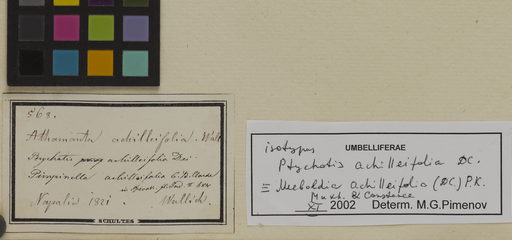 563.
Athamanta achilleifolia. Wall
Ptychotis achilleifolia Dec:
Pimpinella achilleifolia C. B. Clarke
in Hook fl. Ind. II
Napalia 1821. Wallich.
SCHULTES
isotypus UMBELLIFERAE
Ptychotis achilleifolia DC.
≡ Meeboldia achilleifolia (DC.) P.K.
Mukh. & Constance
XI 2002 Determ. M.G.Pimenov